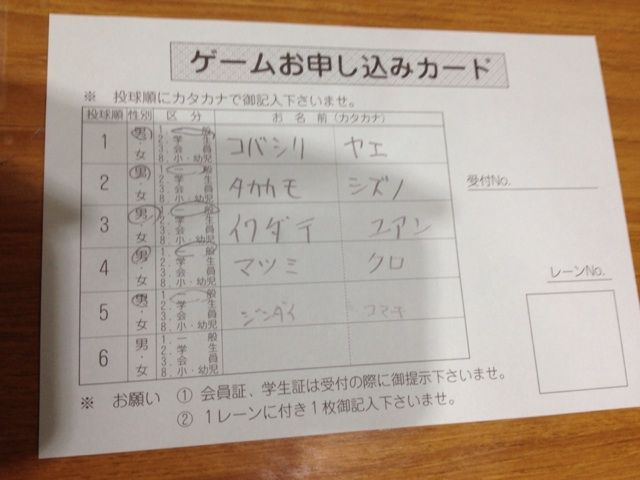 ゲームお申し込みカード
※ 投球順にカタカナで御記入下さいませ。
投球順 性別 区分 お名前(カタカナ)
1 男・女 1.一般 2.学生 3.会員 8.小・幼児 コバシリ ヤエ
2 男・女 1.一般 2.学生 3.会員 8.小・幼児 タカカモ シズノ
受付No.
3 男・女 1.一般 2.学生 3.会員 8.小・幼児 イワダテ ユアン
4 男・女 1.一般 2.学生 3.会員 8.小・幼児 マツミ クロ
レーンNo.
5 男・女 1.一般 2.学生 3.会員 8.小・幼児 シンダイ コマキ
6 男・女 1.一般 2.学生 3.会員 8.小・幼児
※ お願い ① 会員証、学生証は受付の際に御提示下さいませ。
② 1レーンに付き1枚御記入下さいませ。